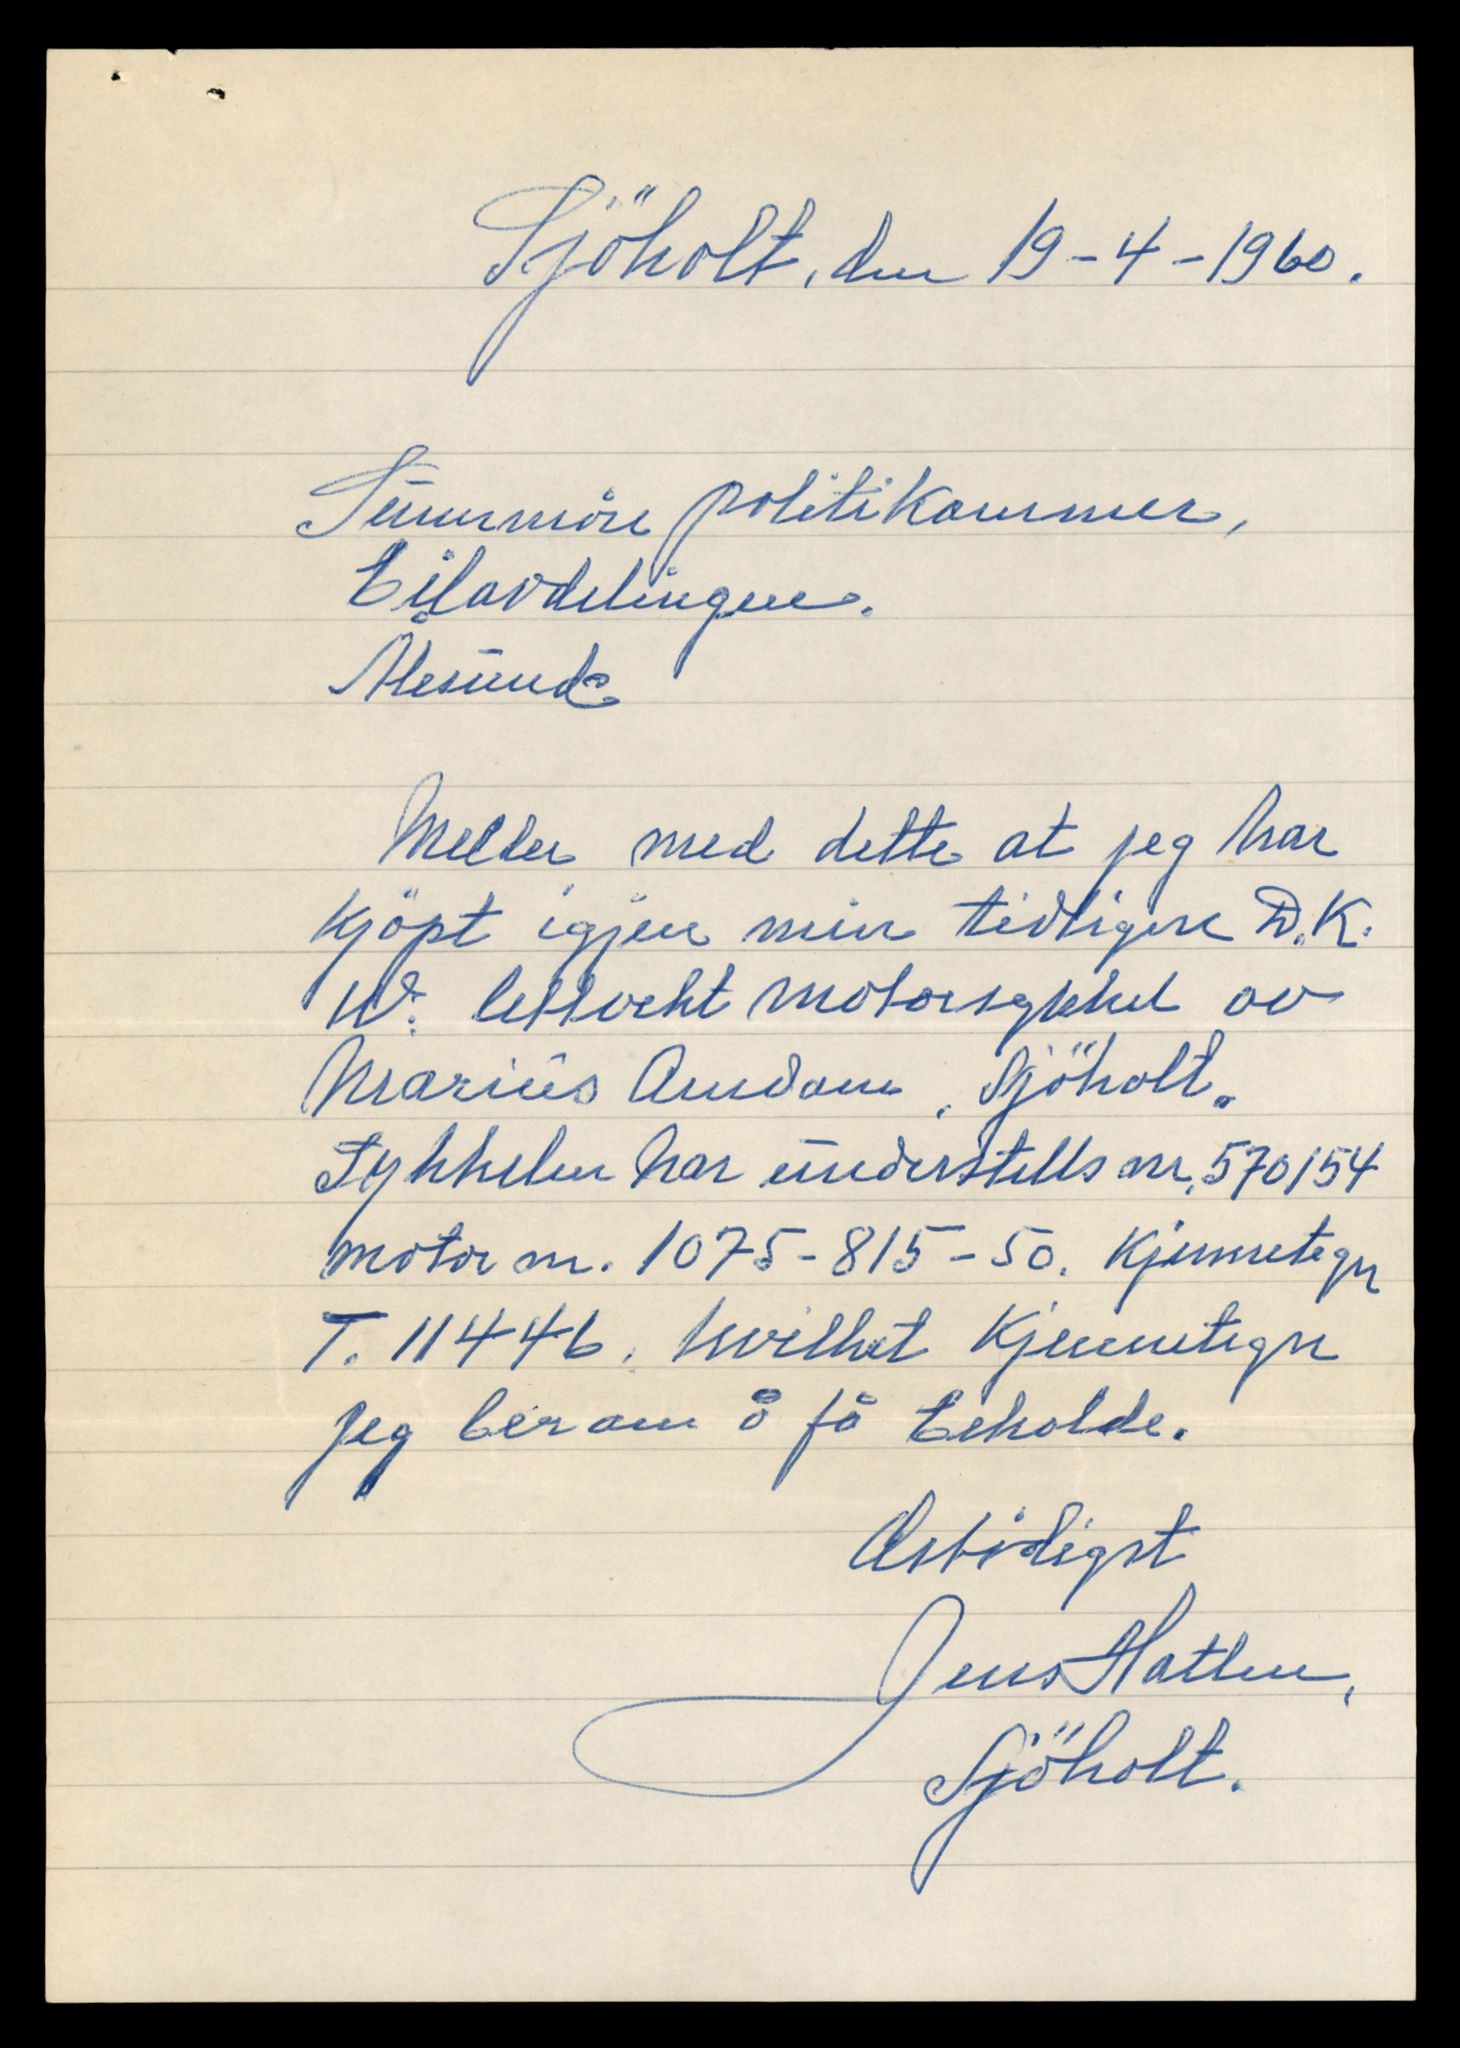 Sjöholt, den 19-4-1960.
Sunnmöre politikammer,
Bilavdelingen.
Ålesund
Melder med dette at jeg har
kjöpt igjen min tidligere D.K.
W. lettvekt motorsykkel av
Marius Amdam, Sjöholt.
Sykkelen har understells nr. 570154
motor nr. 1075-815-50. Kjennetegn
T. 11446. hvilket Kjennetegn
jeg ber om å få beholde.
Ærbödigst
Jens Hatlen,
Sjöholt.